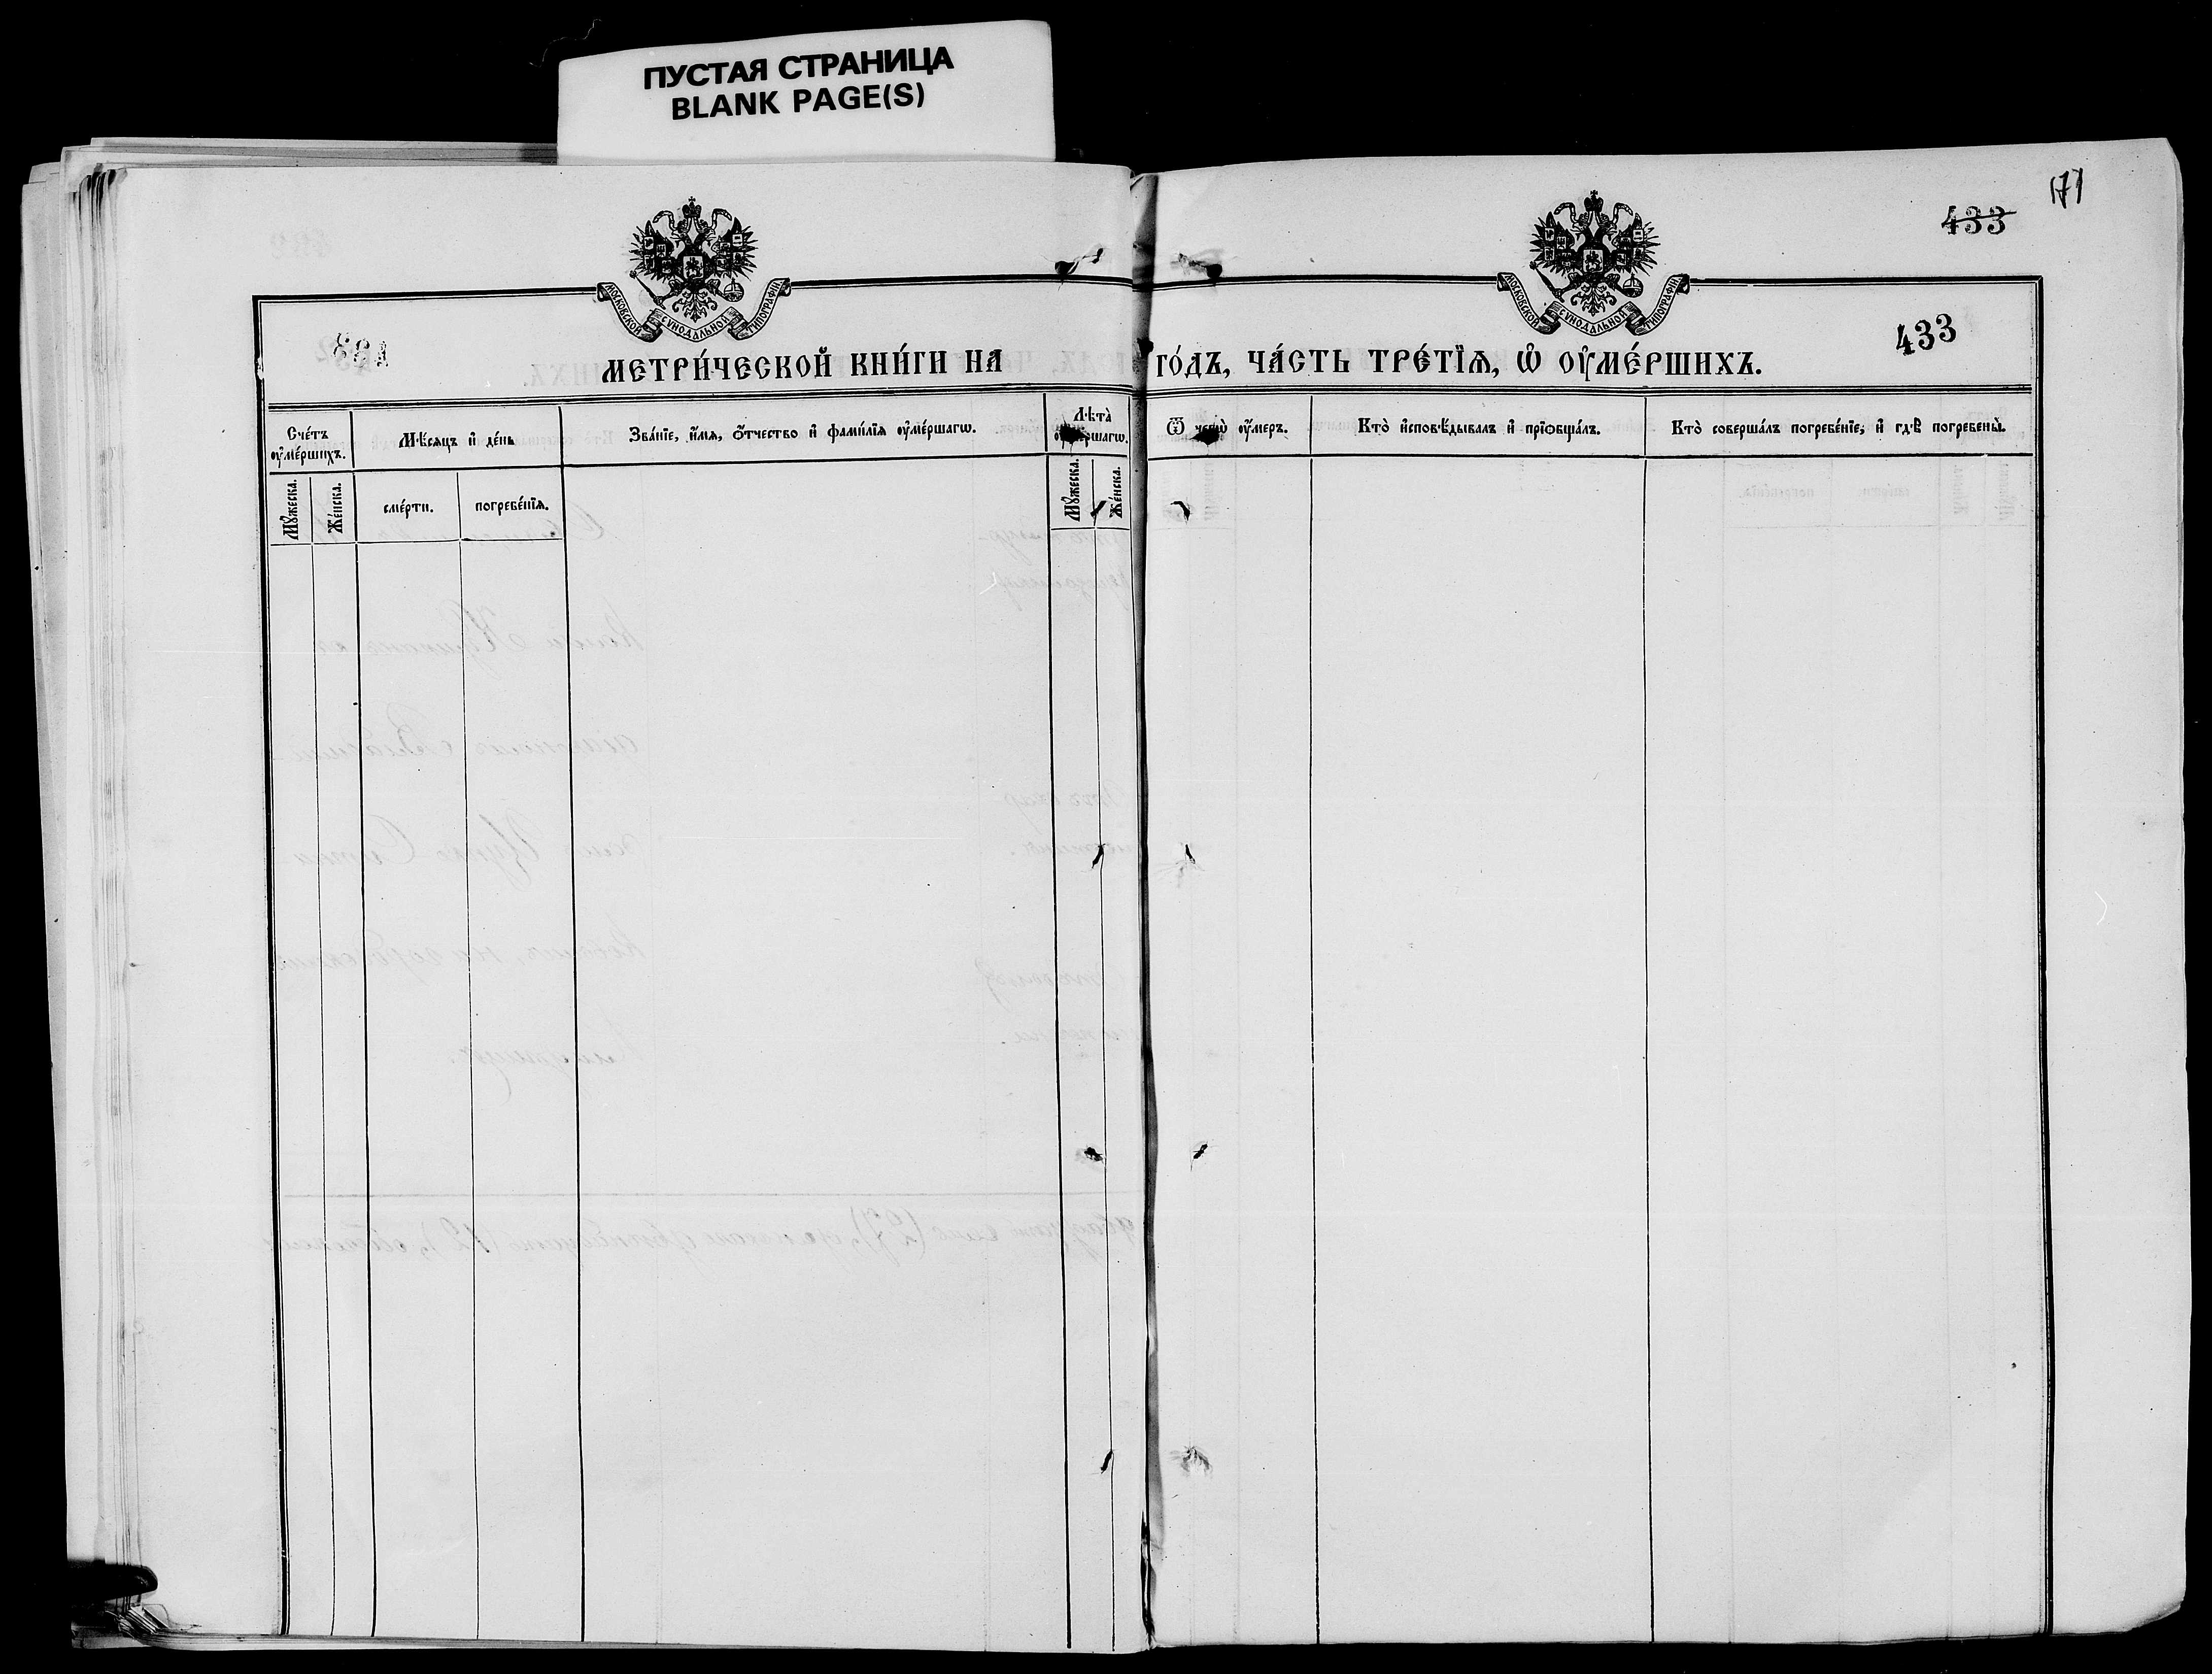 ПУСТАЯ СТРАНИЦА
BLANK PAGE(S)
171
433
МОСКОВСКОЙ СѴНОДАЛЬНОЙ ТИПОГРАФІИ
МОСКОВСКОЙ СѴНОДАЛЬНОЙ ТИПОГРАФІИ
433
МЕТРИ́ЧЕСКОЙ КНИ́ГИ НА ГО́ДЪ, ЧА́СТЬ ТРЕ́ТЇѦ, Ѡ҆ ОУ҆МЕ́РШИХЪ.
Сче́тъ оу҆ме́ршихъ.
Мѣ́сяцъ и҆ де́нь
Зва́нїе, и҆́мѧ, ѻ҆́тчество и҆ фами́лїѧ оу҆ме́ршагѡ.
Лѣ́та̀ оу҆ме́ршагѡ.
Ѿ чегѡ̀ оу҆́меръ.
Кто̀ и҆сповѣ́дывалъ и҆ прїѡбща́лъ.
Кто̀ соверша́лъ погребе́нїе, и҆ гдѣ̀ погребены̀.
Мꙋ́жеска.
Же́нска.
сме́рти.
погребе́нїѧ.
Мꙋ́жеска.
Же́нска.